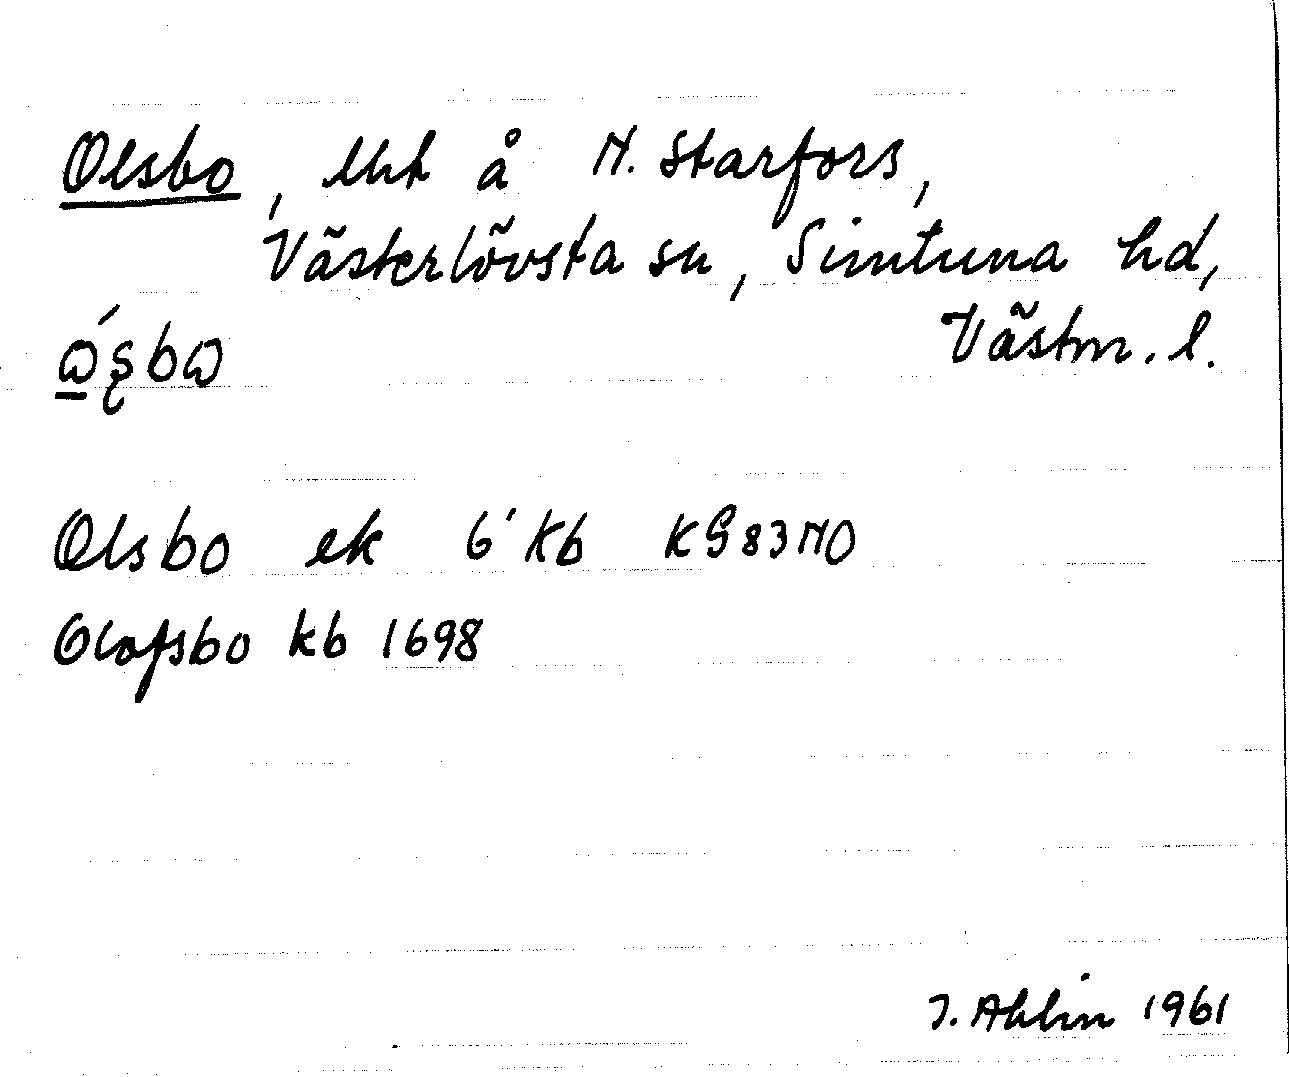 Olsbo, lht å N. Starfors,
Västerlövsta sn, Simtuna hd,
Västm. l.
ώʂbω
Olsbo ek 6' kb KG83NO
Olofsbo kb 1698
I. Ahlin 1961